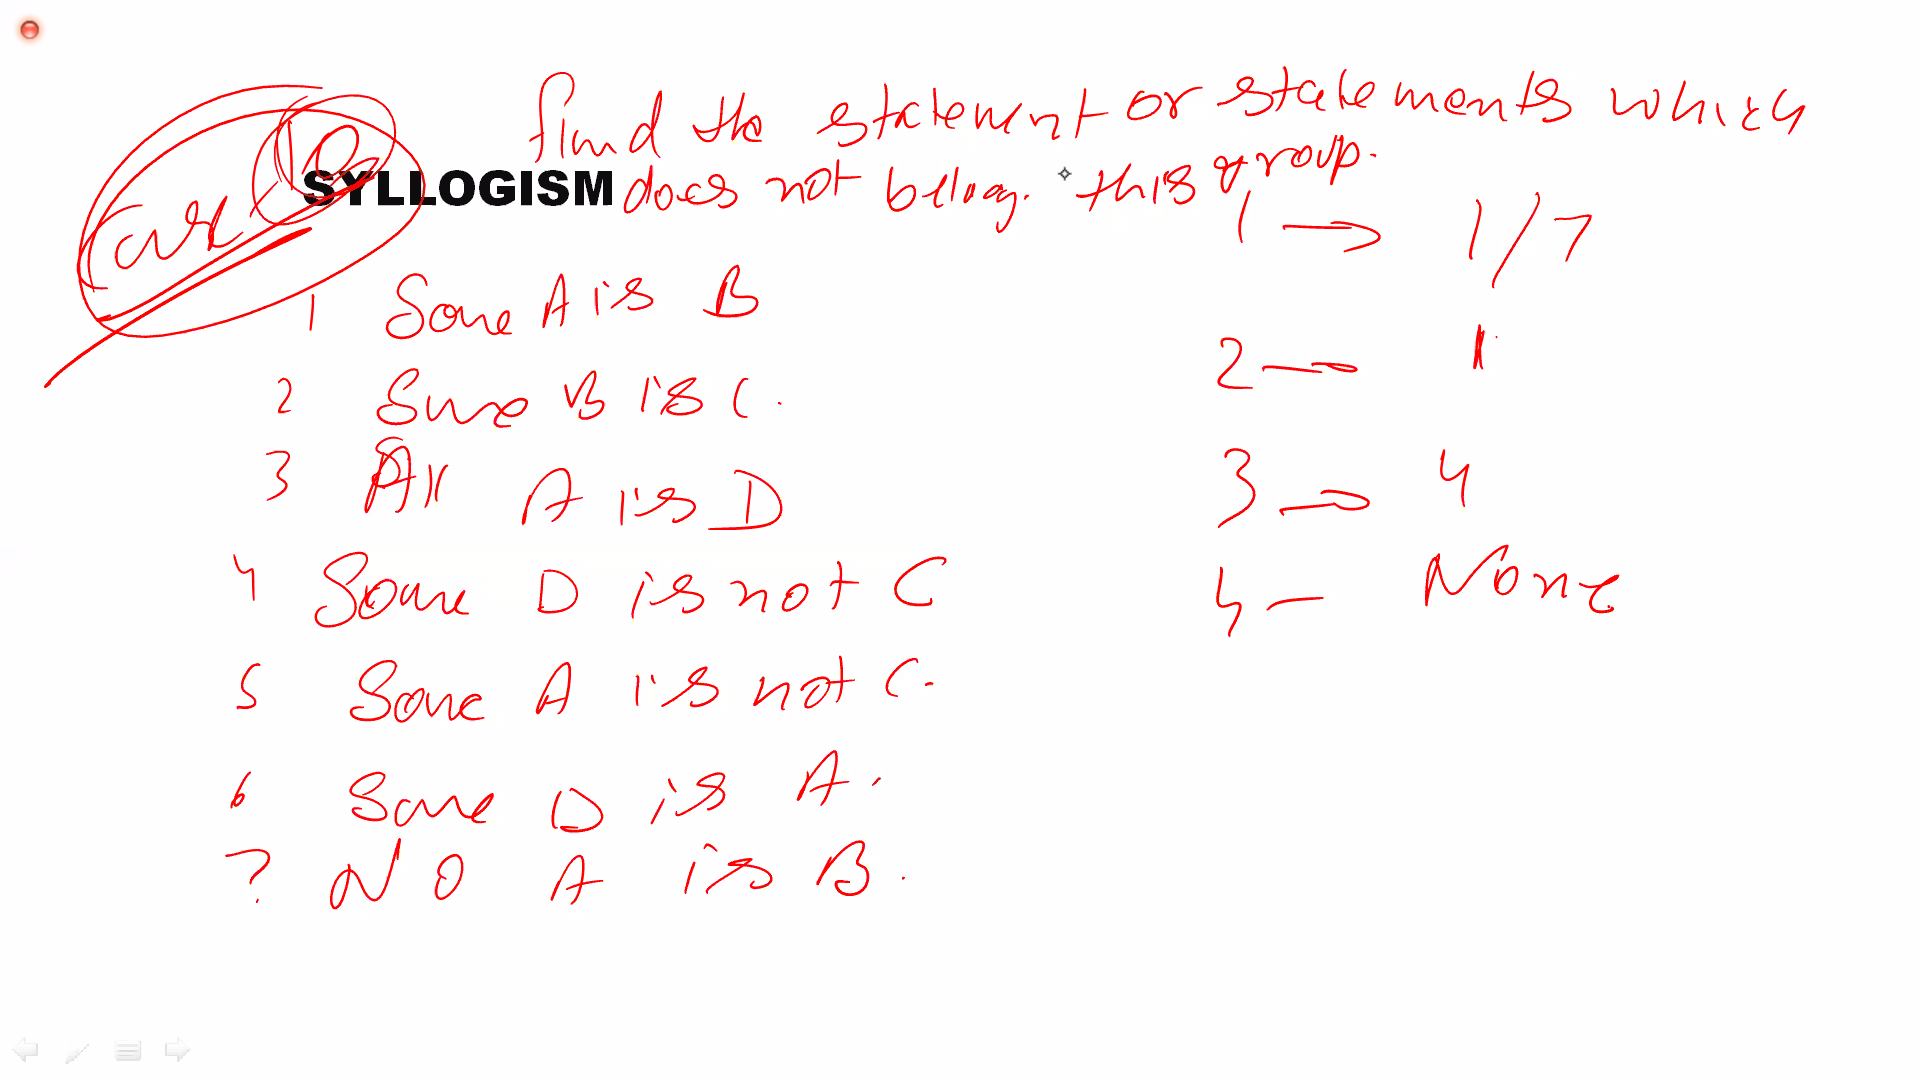 find the statement or statements which
Case 10 SYLLOGISM does not belong. this group.
1 Some A is B
2 Some B is C.
3 All A is D
4 Some D is not C
5 Some A is not C.
6 Some D is A.
7 NO A is B.
1 → 1/7
2 → 1
3 → 4
4 - None